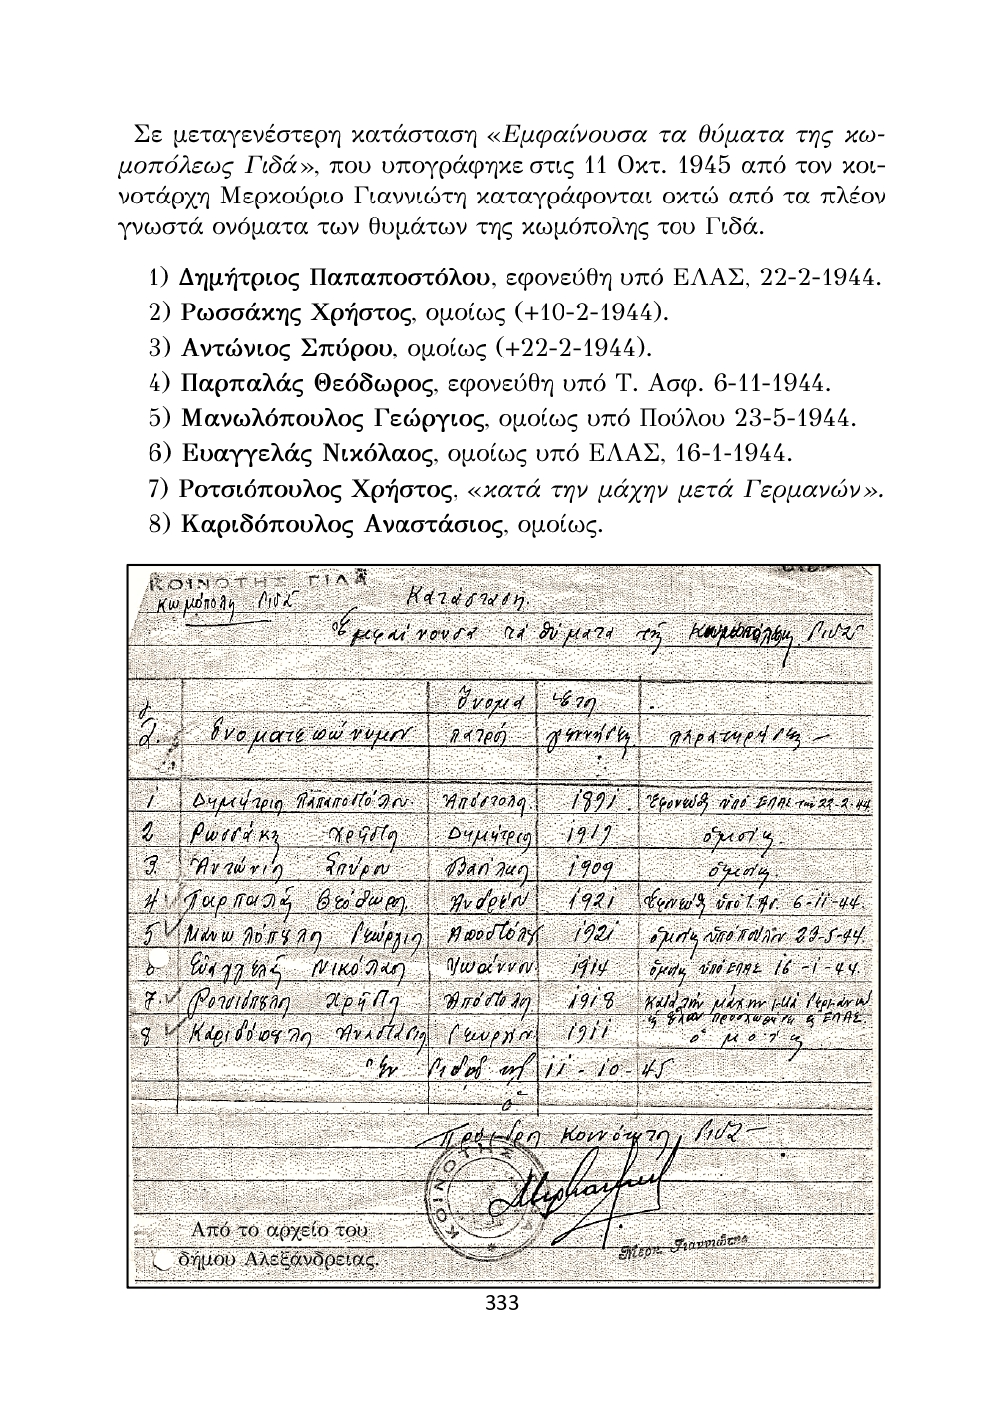 Σε μεταγενέστερη κατάσταση «Εμφαίνουσα τα θύματα της κω-
μοπόλεως Γιδά», που υπογράφηκε στις 11 Οκτ. 1945 από τον κοι-
νοτάρχη Μερκούριο Γιαννιώτη καταγράφονται οκτώ από τα πλέον
γνωστά ονόματα των θυμάτων της κωμόπολης του Γιδά.
1) Δημήτριος Παπαποστόλου, εφονεύθη υπό ΕΛΑΣ, 22-2-1944.
2) Ρωσσάκης Χρήστος, ομοίως (+10-2-1944).
3) Αντώνιος Σπύρου, ομοίως (+22-2-1944).
4) Παρπαλάς Θεόδωρος, εφονεύθη υπό Τ. Ασφ. 6-11-1944.
5) Μανωλόπουλος Γεώργιος, ομοίως υπό Πούλου 23-5-1944.
6) Ευαγγελάς Νικόλαος, ομοίως υπό ΕΛΑΣ, 16-1-1944.
7) Ροτσιόπουλος Χρήστος, «κατά την μάχην μετά Γερμανών».
8) Καριδόπουλος Αναστάσιος, ομοίως.
ΚΟΙΝΟΤΗΣ ΓΙΔΑ
Κωμόπολη Γιδά Κατάσταση
Ἐμφαίνουσα τά θύματα τῆς Κωμοπόλεως Γιδᾶ
Ὄνομα Ἔτη
Ὀνοματεπώνυμον πατρός γεννήσεως παρατηρήσεις
1 Δημήτριος Παπαποστόλου Ἀπόστολος 1891 Ἐφονεύθη ὑπό ΕΛΑΣ τήν 22-2-44
2 Ρωσσάκης Χρῆστος Δημήτριος 1917 ὁμοίως
3 Ἀντώνιος Σπύρου Βασίλειος 1909 ὁμοίως
4 Παρπαλάς Θεόδωρος Ἀνδρέου 1921 Ἐφονεύθη ὑπό Τ. Ασ. 6-11-44.
5 Μανωλόπουλος Γεώργιος Αποστόλου 1921 ὁμοίως ὑπό Πούλου 23-5-44
6 Εὐαγγελάς Νικόλαος Ἰωάννου 1914 ὁμοίως ὑπό ΕΛΑΣ 16-1-44.
7 Ροτσιόπουλος Χρῆστος Ἀπόστολος 1918 κατά τήν μάχην μετά Γερμανῶν
ΕΛΑΣ.
8 Καριδόπουλος Αναστάσιος Γεωργίου 1911 ὁμοίως
Ἐν Γιδᾶ τῇ 11-10-45
Ο
Πρόεδρος Κοινότητος Γιδᾶ
ΚΟΙΝΟΤΗΣ
Μερκ. Γιαννιώτης
Από το αρχείο του
δήμου Αλεξάνδρειας.
333